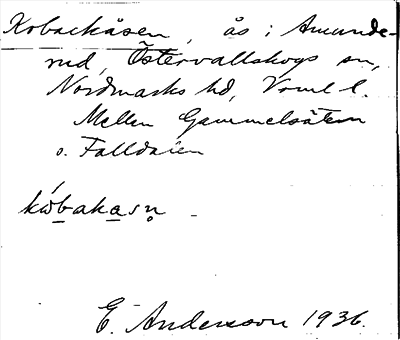 Kobackåsen, ås i Amunde-
rud, Östervallskogs sn,
Nordmarks hd, Vrml l.
Mellan Gammelsätern
o. Falldalen
kwbakasn -
E. Andersson 1936.